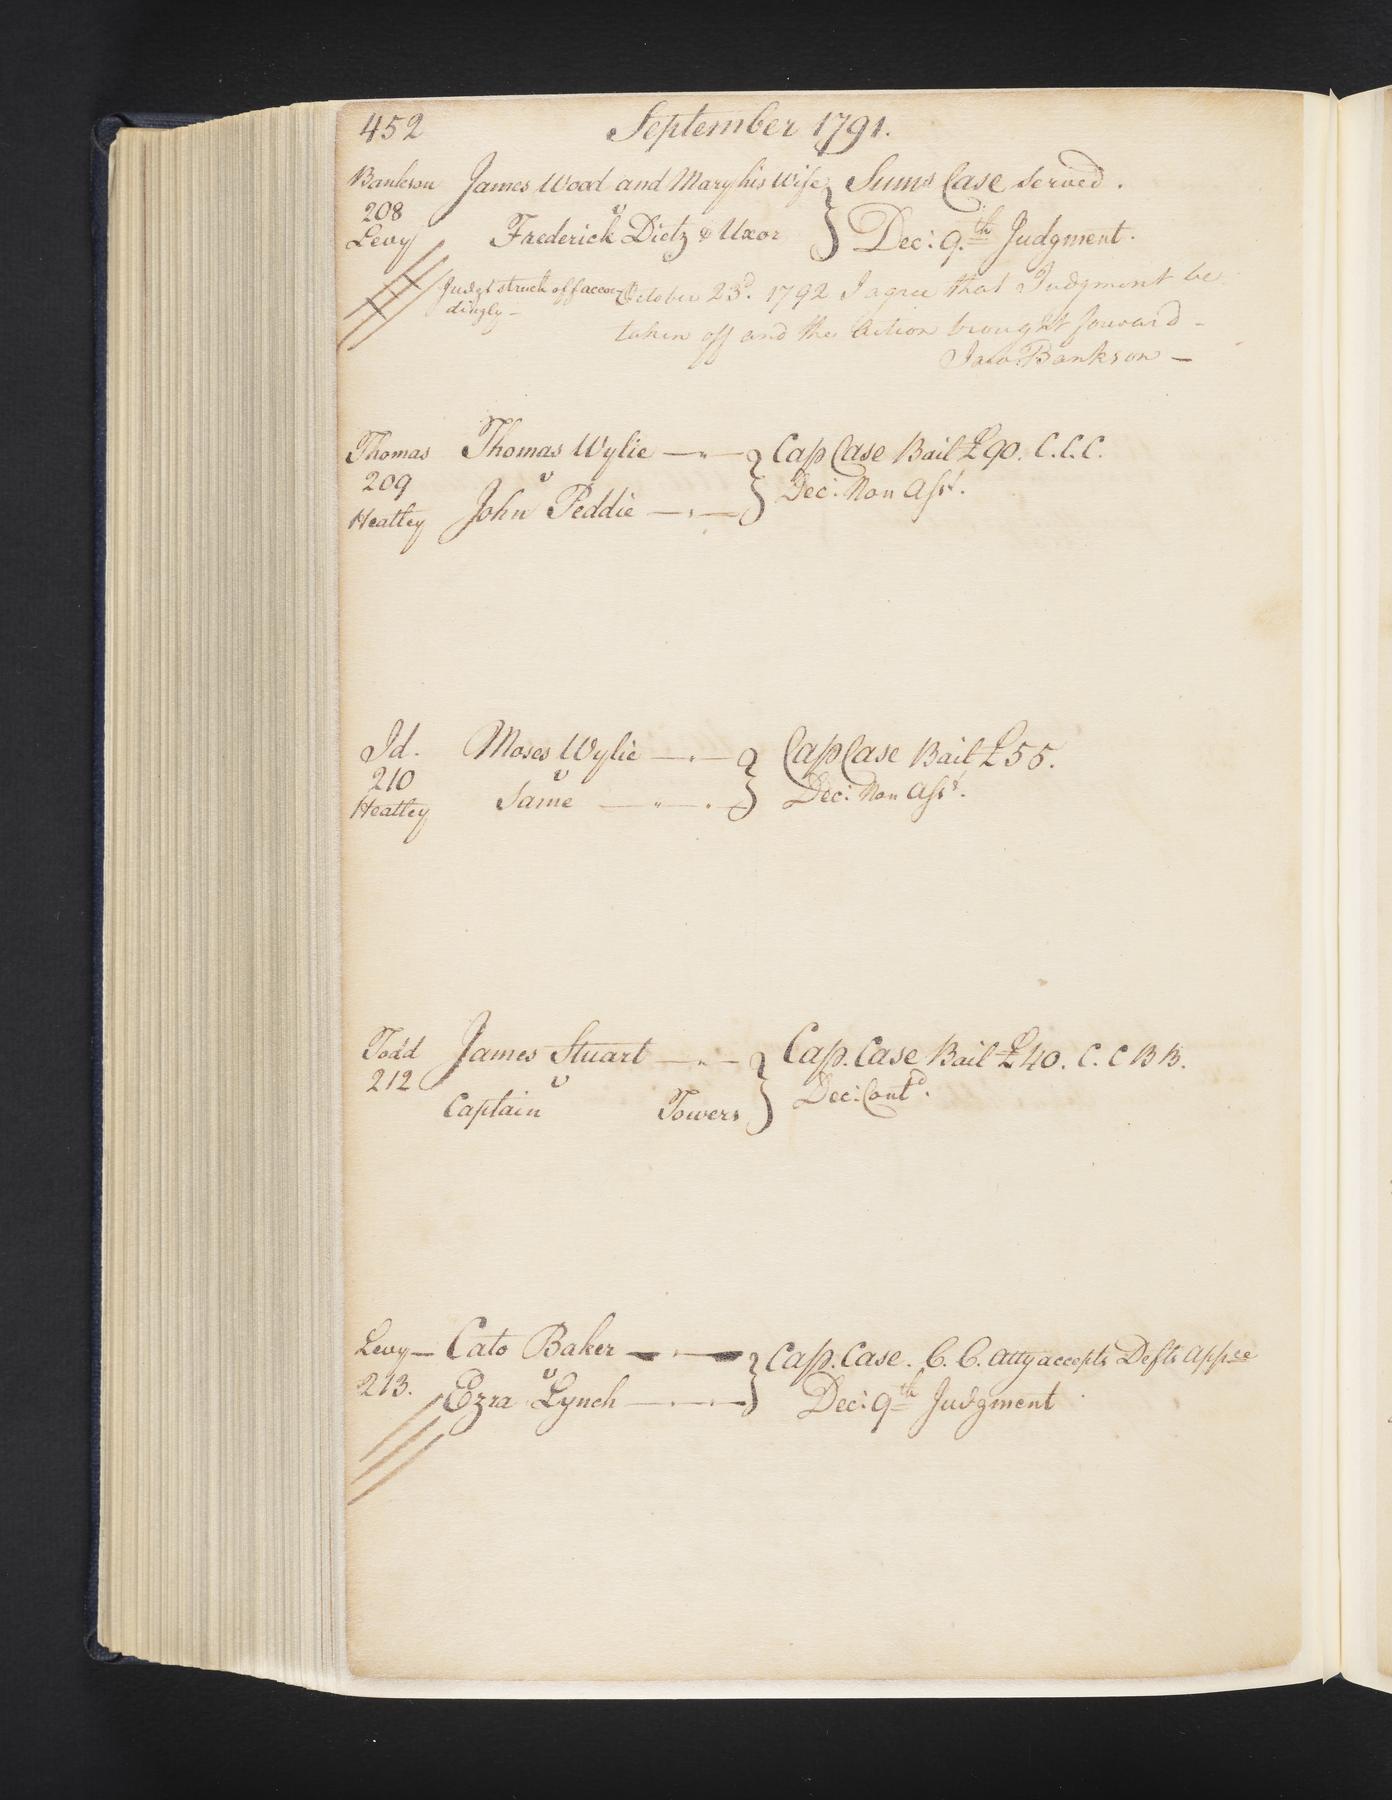 452 September 1791.
Bankson James Wood and Mary his Wife } Sums Case served.
208 v
Levy Frederick Dietz & Uxor } Dec: 9th Judgment.
Judgt struck off accor- October 23d. 1792 I agree that Judgment be
dingly - taken off and the Action brought forward -
Jaco: Bankson -
Thomas Thomas Wylie } Cap Case Bail £90. C.C.C.
209 v Dec: Non Asst.
Heatley John Peddie
Id. Moses Wylie } Cap Case Bail £55.
210 v Dec: Non Asst.
Heatley Same
Todd James Stuart } Cap. Case Bail £40. C. C B B.
212 v Dec: Contd.
Captain Towers
Levy - Cato Baker } Cap. Case. C. C. Atty accepts Defts appce
213. v
Ezra Lynch Dec: 9th Judgment